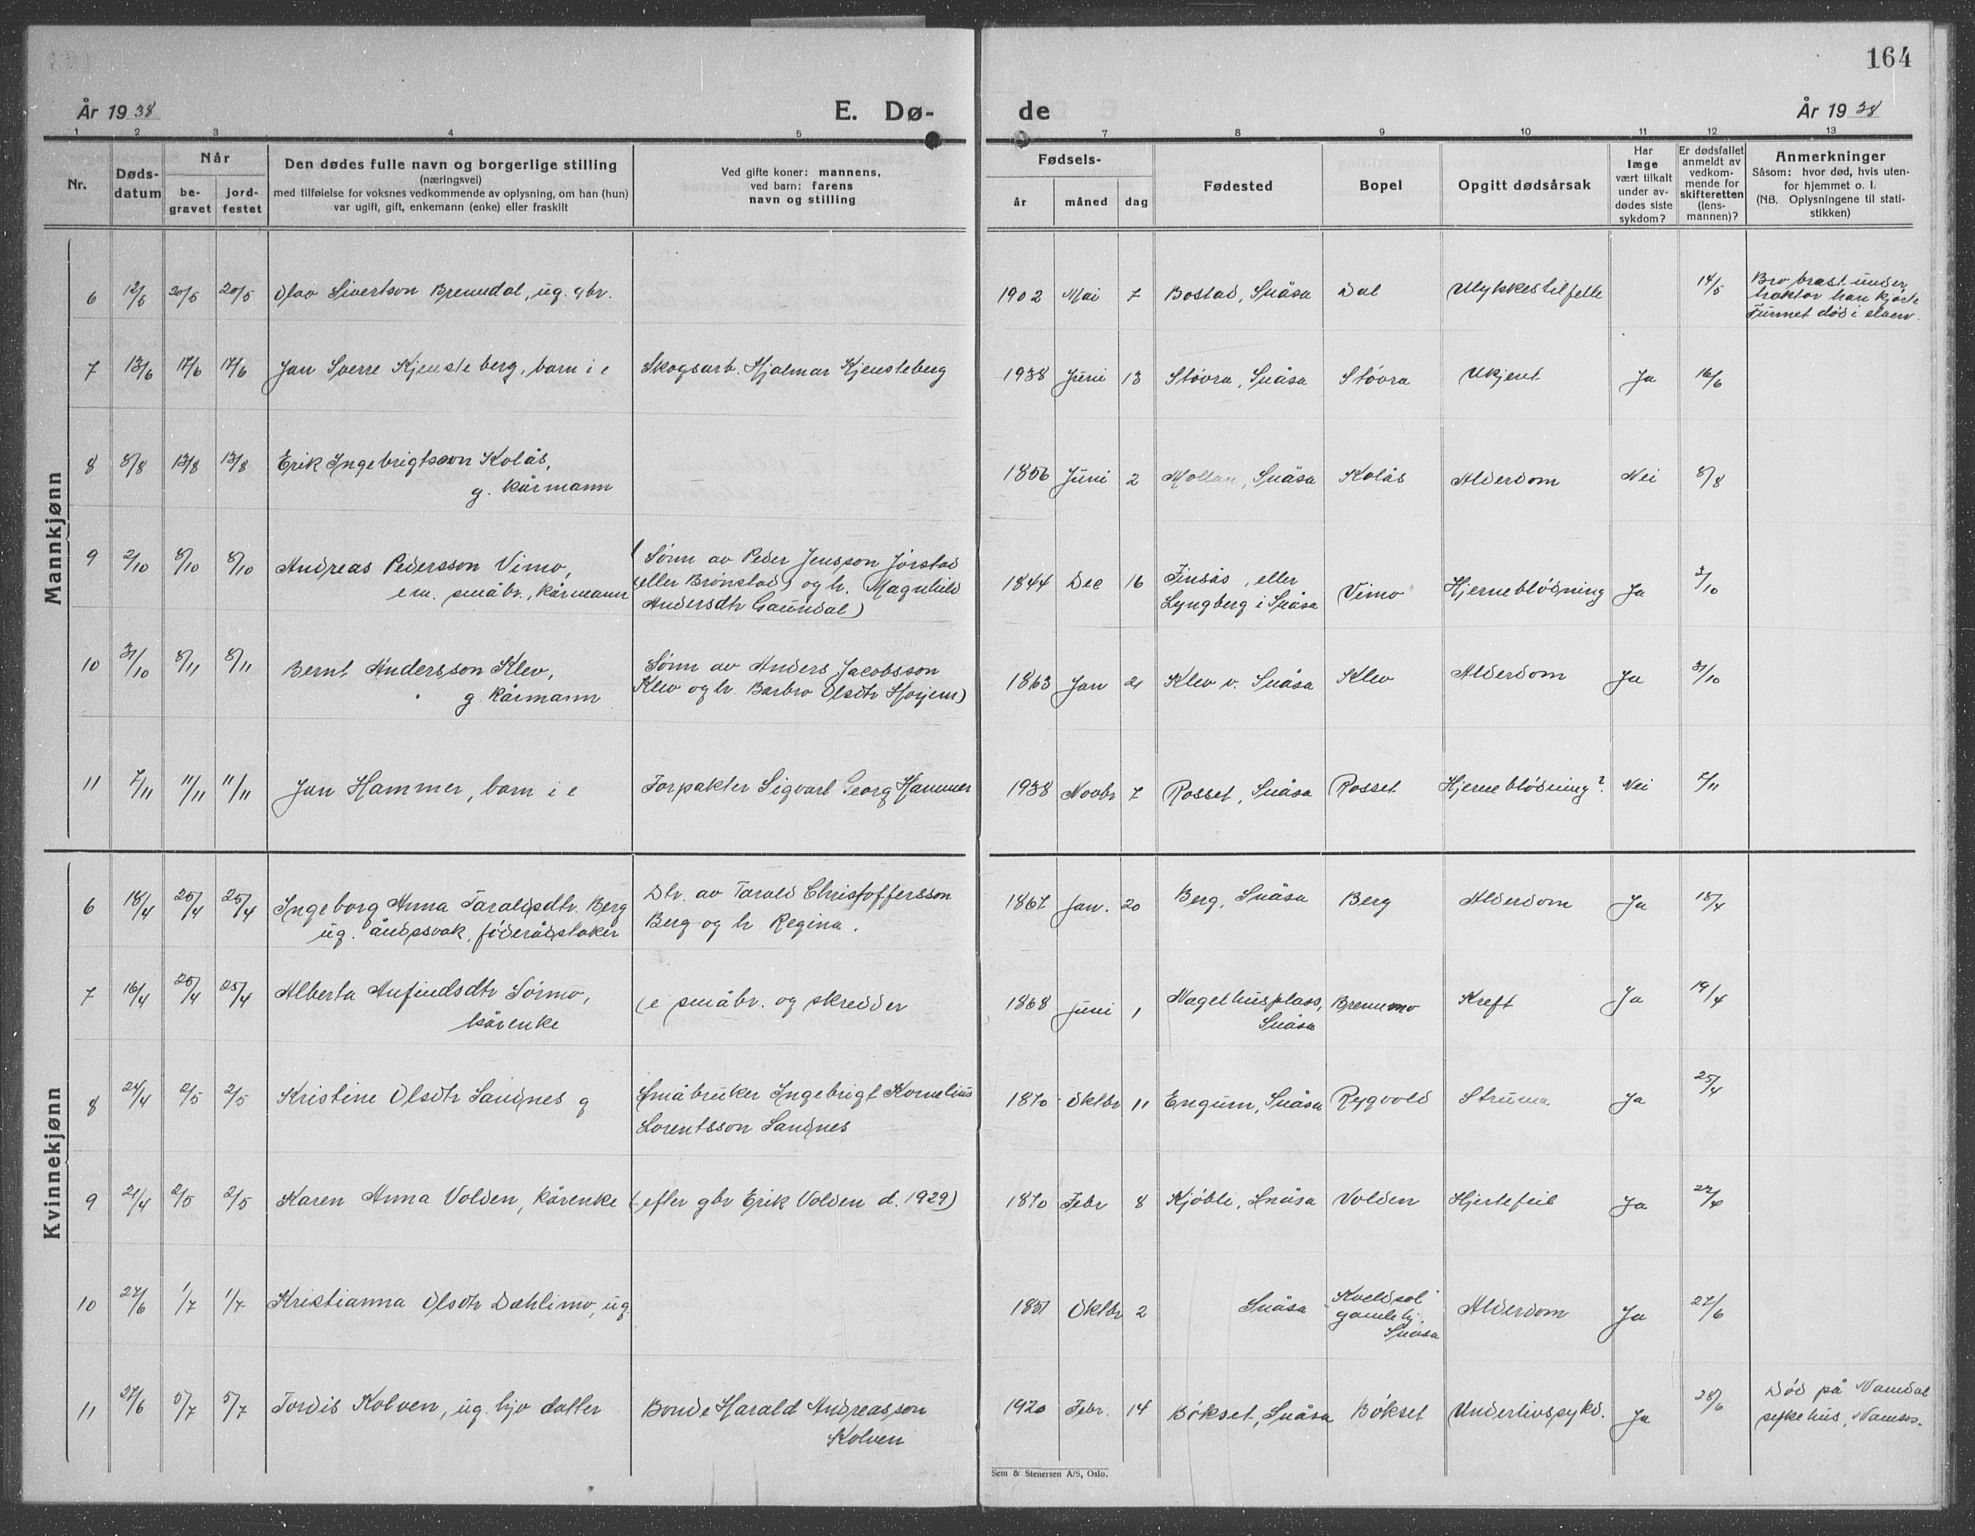 164
År 1938 E. Dø- de År 1938
1 2 3 4 5 7 8 9 10 11 12 13
Nr.
Døds-
datum
Når
be-
gravet
jord-
festet
Den dødes fulle navn og borgerlige stilling
(næringsvei)
med tilføielse for voksnes vedkommende av oplysning, om han (hun)
var ugift, gift, enkemann (enke) eller fraskilt
Ved gifte koner: mannens,
ved barn: farens
navn og stilling
Fødsels-
år måned dag
Fødested
Bopel
Opgitt dødsårsak
Har
læge
vært tilkalt
under av-
dødes siste
sykdom?
Er dødsfallet
anmeldt av
vedkom-
mende for
skifteretten
(lens-
mannen)?
Anmerkninger
Såsom: hvor død, hvis uten-
for hjemmet o. l.
(NB. Oplysningene til stati-
stikken)
Mannkjønn
6 12/5 20/5 20/5 Olav Sivertson Bremdal, ug. gbr. 1902 Mai 7 Bostad, Snåsa Dal Ulykkestilfelle 14/5 Bro brast under
traktor han kjørte
Funnet død i elven.
7 13/6 17/6 17/6 Jan Sverre Kjensteberg, barn i e Skogsarb. Hjalmar Kjensteberg 1938 Juni 13 Støvra, Snåsa Støvra Ukjent Ja 16/6
8 8/8 13/8 13/8 Erik Ingebrigtsson Kolås,
g. kårmann 1856 Juni 2 Mollan, Snåsa Kolås Alderdom Nei 8/8
9 2/10 8/10 8/10 Andreas Pedersson Vimo,
em. småbr., kårmann
(Sønn av Peder Jensson Jørstad
(eller Brønstad) og h. Magnhild
Andersdtr Gaundal)
1844 Dec 16 Finsås, eller
Lyngberg i Snåsa Vimo Hjerneblødning Ja 3/10
10 31/10 8/11 8/11 Bernt Andersson Klev,
g kårmann
Sønn av Anders Jacobsson
Klev og h. Barbro Olsdtr Horjem)
1863 Jan 21 Klev v. Snåsa Klev Alderdom Ja 31/10
11 7/11 11/11 11/11 Jan Hammer, barn i e Forpakter Sigvart Georg Hammer 1938 Novbr 7 Rosset, Snåsa Rosset Hjerneblødning? Nei 7/11
Kvinnekjønn
6 18/4 25/4 25/4 Ingeborg Anna Taraldsdtr. Berg
ug. åndssvak, føderådstaker
Dtr. av Tarald Christoffersson
Berg og h Regina.
1867 Jan. 20 Berg, Snåsa Berg Alderdom Ja 18/4
7 16/4 25/4 25/4 Alberta Anfindsdtr Sørmo,
kårenke
(e småbr. og skredder
1868 Juni 1 Nagelhusplass,
Snåsa Bremmo Kreft Ja 19/4
8 24/4 2/5 2/5 Kristine Olsdtr Sandnes g
Småbruker Ingebrigt Kornelius
Lorentsson Sandnes
1870 Oktbr 11 Engum, Snåsa Rygvold Struma Ja 25/4
9 21/4 2/5 2/5 Karen Anna Volden, kårenke (efter gbr Erik Volden d. 1929) 1870 Febr 8 Kjøbli, Snåsa Volden Hjertefeil Ja
10 27/6 1/7 1/7 Kristianna Olsdtr Dæhlimo, ug. 1851 Oktbr 2 Snåsa "Kveldsol"
gamlehj.
Snåsa Alderdom Ja 27/6
11 27/6 5/7 5/7 Tordis Kolven, ug. hjv datter Bonde Harald Andreasson
Kolven
1920 Febr. 14 Bøkset, Snåsa Bøkset Underlivssykd. Ja 28/6 Død på Namdal
sykehus, Namsos.
Sem & Stenersen A/S, Oslo.